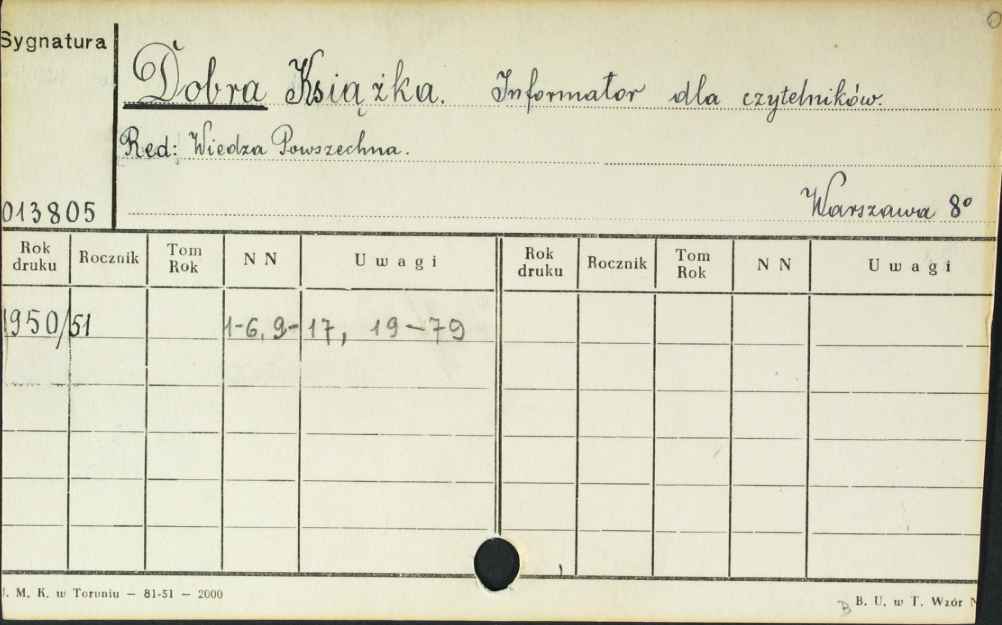 Sygnatura
Dobra Książka. Informator dla czytelników.
Red: Wiedza Powszechna.
013805
Warszawa 8°
Rok druku Rocznik Tom Rok N N Uwagi Rok druku Rocznik Tom Rok N N Uwagi
1950/51 1-6, 9-17, 19-79
J. M. K. w Toruniu — 81-51 — 2000
B B. U. w T. Wzór N